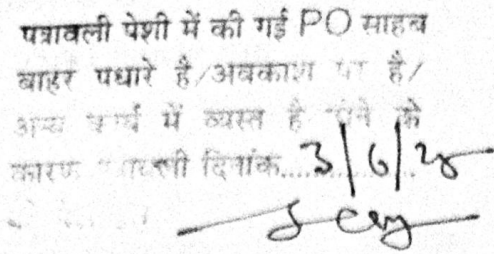 पत्रावली पेशी में की गई PO साहब
बाहर पधारे है/अवकाश पर है/
अन्य कार्य में व्यस्त है होने के
कारण पत्रावली दिनांक.....3/6/25